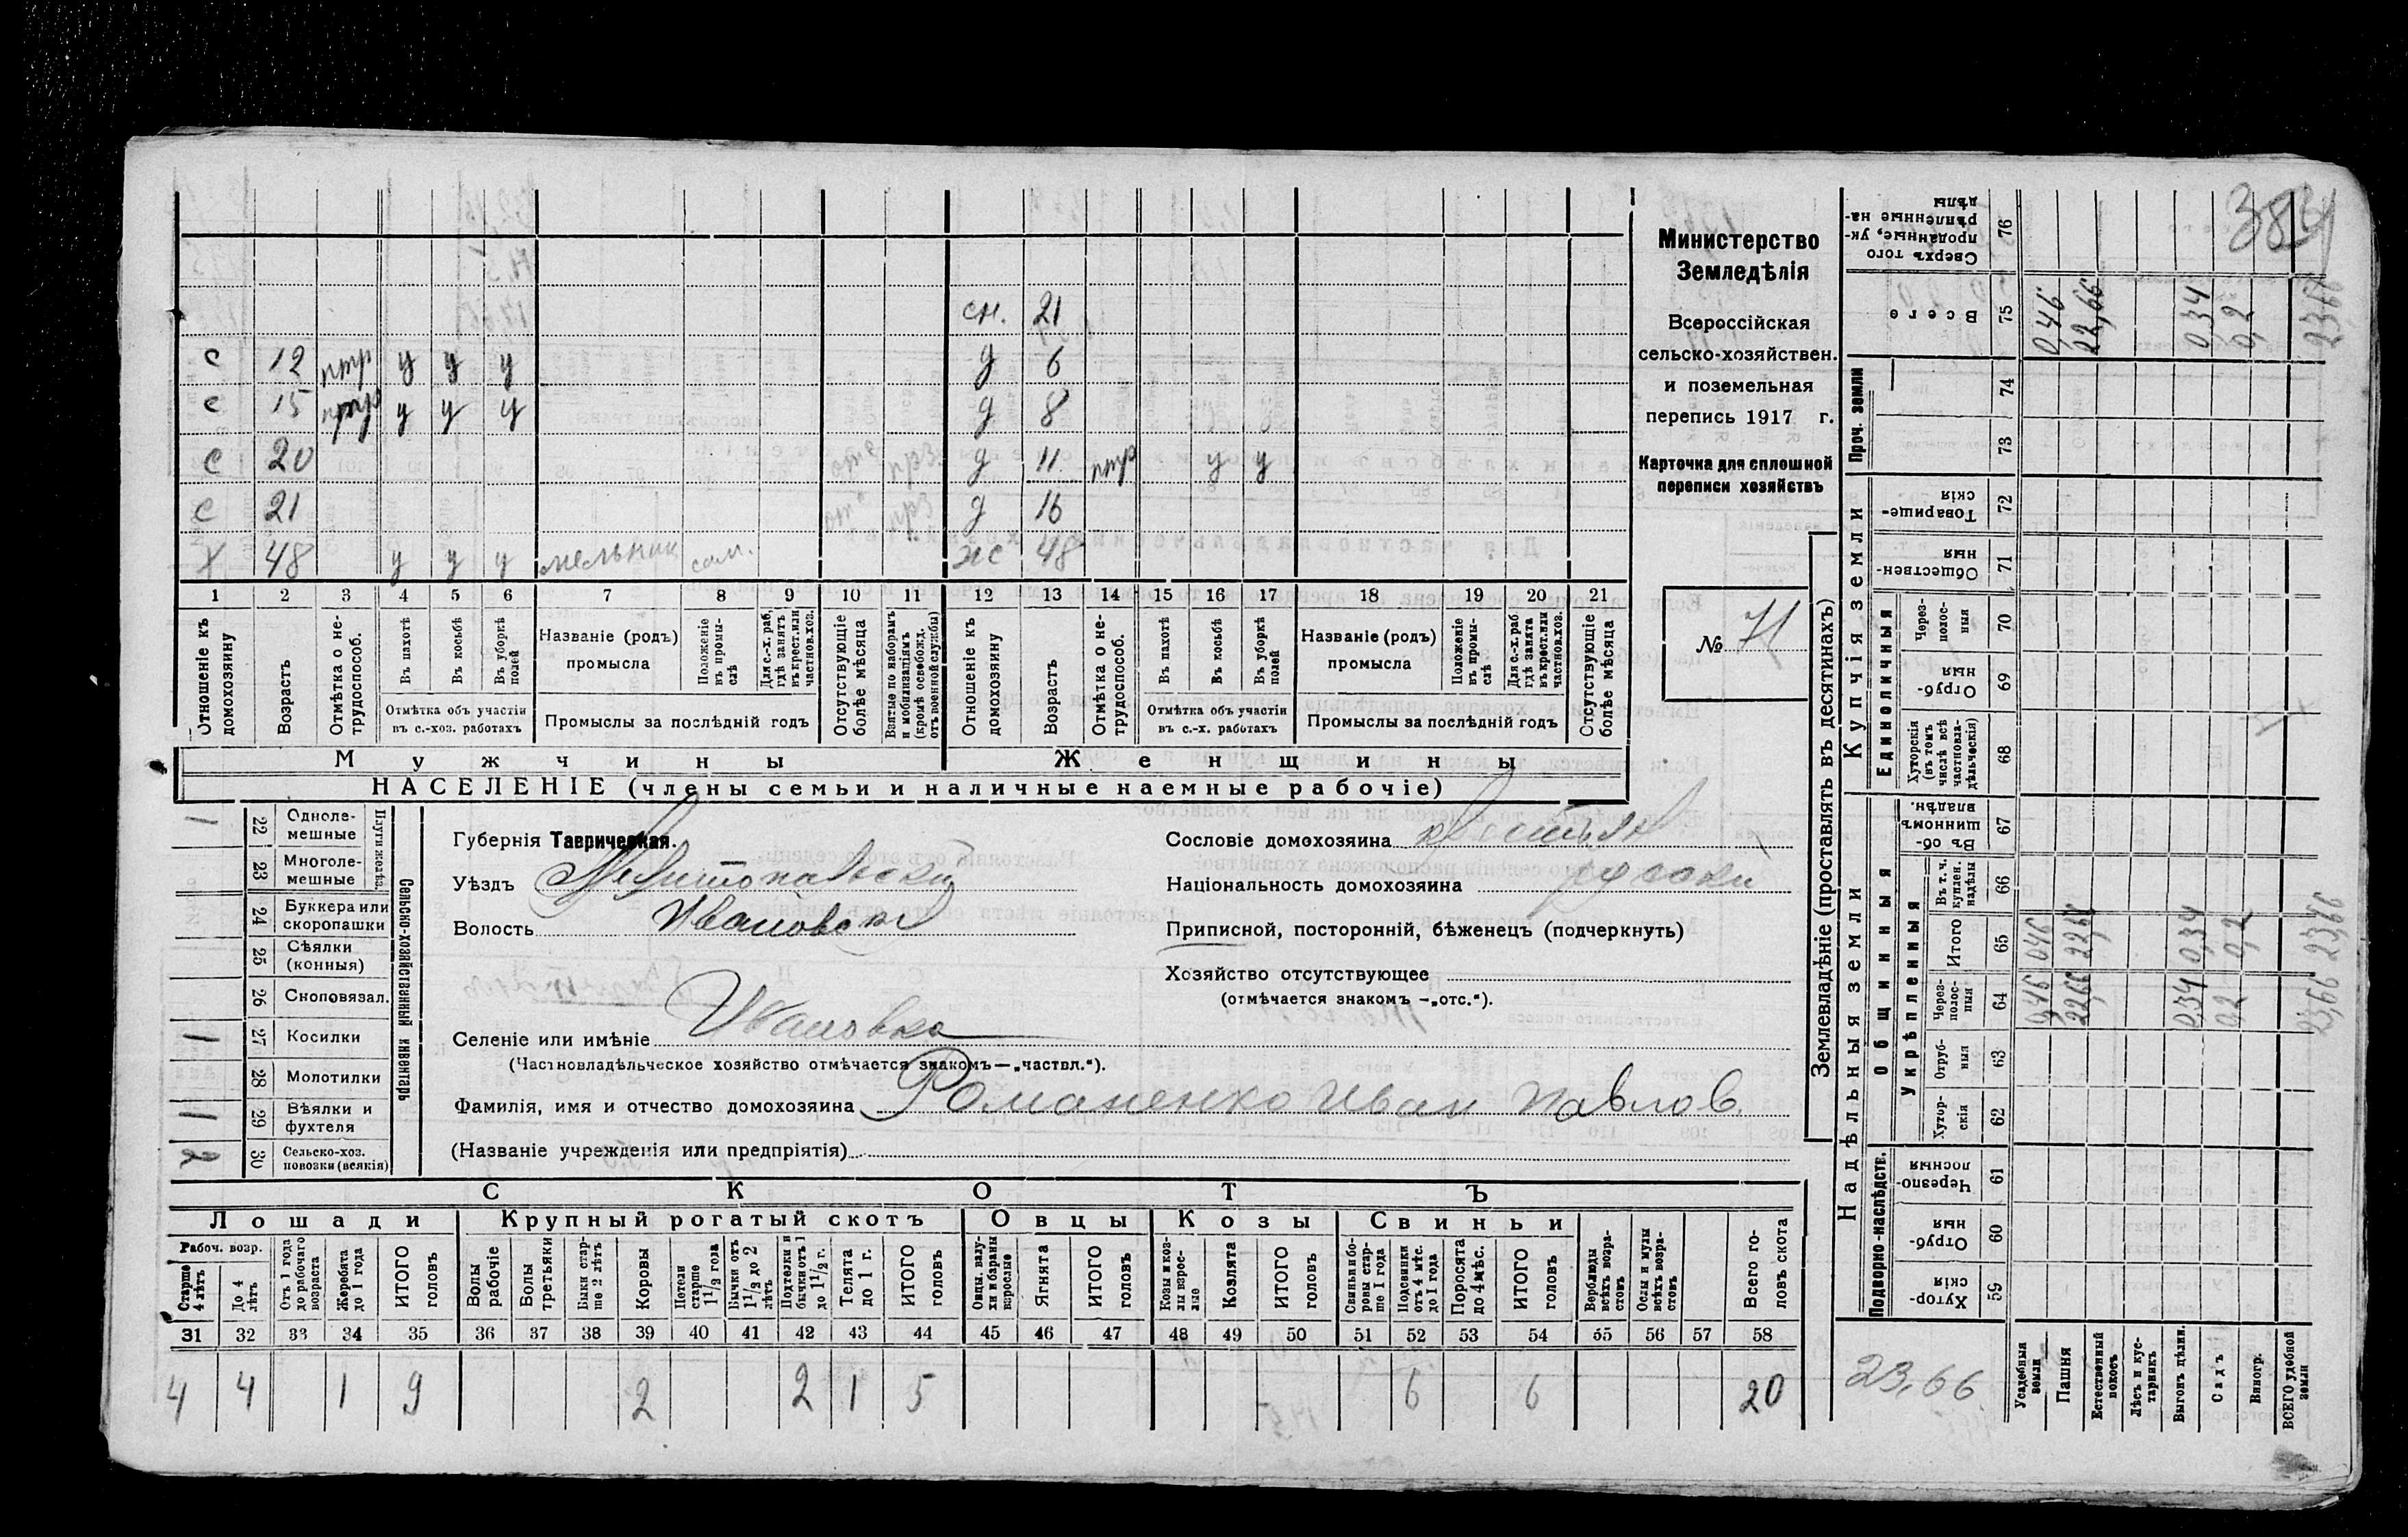 сн. 21
с 12 нтр у у у д 6
с 15 нтр у у у д 8
с 20 отс прз. д 11 нтр у у
с 21 отс прз д 16
х 48 у у у мельник сам. ж 48
1 2 3 4 5 6 7 8 9 10 11 12 13 14 15 16 17 18 19 20 21
Отношеніе къ домохозяину
Возрастъ
Отмѣтка о не-трудоспособ.
Въ пахотѣ
Въ косьбѣ
Въ уборкѣ полей
Отмѣтка объ участіи
въ с.-хоз. работахъ
Названіе (родъ)
промысла
Положеніе въ промы-слѣ
Для с.-х. раб. гдѣ занятъ въ крест. или частнов. хоз.
Промыслы за послѣдній годъ
Отсутствующіе болѣе мѣсяца
Взятые по наборамъ и мобилизаціямъ (кромѣ освобожд. отъ военной службы)
Отношеніе къ домохозяину
Возрастъ
Отмѣтка о не-трудоспособ.
Въ пахотѣ
Въ косьбѣ
Въ уборкѣ полей
Отмѣтка объ участіи
въ с.-х. работахъ
Названіе (родъ)
промысла
Положеніе въ промы-слѣ
Для с.-х. раб. гдѣ занята въ крест. или частнов. хоз.
Промыслы за послѣдній годъ
Отсутствующіе болѣе мѣсяца
Мужчины Женщины
НАСЕЛЕНІЕ (члены семьи и наличные наемные рабочіе)
Министерство
Земледѣлія
Всероссійская
сельско-хозяйствен.
и поземельная
перепись 1917 г.
Карточка для сплошной
переписи хозяйствъ
№ 71
Сельско-хозяйственный инвентарь
Плуги желѣз.
1 22 Одноле-мешные
23 Многоле-мешные
24 Буккера или скоропашки
25 Сѣялки (конныя)
26 Сноповязал.
1 27 Косилки
28 Молотилки
1 29 Вѣялки и фухтеля
2 30 Сельско-хоз. повозки (всякія)
Губернія Таврическая.
Уѣздъ Мелитопольскій
Волость Ивановск
Сословіе домохозяина крестьян
Національность домохозяина русскій
Приписной, посторонній, бѣженецъ (подчеркнуть)
Хозяйство отсутствующее
(отмѣчается знакомъ —„отс.“).
Селеніе или имѣніе Ивановка
(Частновладѣльческое хозяйство отмѣчается знакомъ—„частвл.“).
Фамилія, имя и отчество домохозяина Романенко Иван Павлов.
(Названіе учрежденія или предпріятія)
СКОТЪ
Лошади Крупный рогатый скотъ Овцы Козы Свиньи
Рабоч. возр.
Старше 4 лѣтъ
До 4 лѣтъ
Отъ 1 года до рабочаго возраста
Жеребята до 1 года
ИТОГО головъ
Волы рабочіе
Волы третьяки
Быки стар-ше 2 лѣтъ
Коровы
Нетели старше 1½ года
Бычки отъ 1½ до 2 лѣтъ
Подтелки и бычки отъ 1 до 1½ г.
Телята до 1 г.
ИТОГО головъ
Овцы, валу-хи и бараны взрослые
Ягнята
ИТОГО головъ
Козы и коз-лы взрос-лые
Козлята
ИТОГО головъ
Свиньи и бо-ровы стар-ше 1 года
Подсвинки отъ 4 мѣс. до 1 года
Поросята до 4 мѣс.
ИТОГО головъ
Верблюды всѣхъ возра-стовъ
Ослы и мулы всѣхъ возра-стовъ
Всего го-ловъ скота
31 32 33 34 35 36 37 38 39 40 41 42 43 44 45 46 47 48 49 50 51 52 53 54 55 56 57 58
4 4 1 9 2 2 1 5 6 6 20
Землевладѣніе (проставлять въ десятинахъ)
Надѣльныя земли Купчія земли Проч. земли
Подворно-наслѣдств.
Общинныя
Укрѣпленныя
Единоличныя
59 Хутор-скія
60 Отруб-ныя
61 Черезпо-лосныя
62 Хутор-скія
63 Отруб-ныя
64 Через-полос-ныя
65 Итого
66 Въ т. ч. куплен. надѣлы
67 Въ об-щинномъ владѣн.
68 Хуторскія (въ томъ числѣ всѣ частновла-дѣльческія)
69 Отруб-ныя
70 Через-полос-ныя
71 Обществен-ныя
72 Товарище-скія
73
74
75 Всего
76 Сверхъ того проданные, ук-рѣпленные на-дѣлы
Усадебныя земли 0,46 0,46 0,46
Пашня 22,66 22,66 22,66
Естественный покосъ
Лѣсъ и кус-тарникъ
Выгонъ дѣлин. 0,34 0,34 0,34
Садъ 0,2 0,2 0,2
Виногр.
ВСЕГО удобной земли 23,66 23,66 23,66
23,66